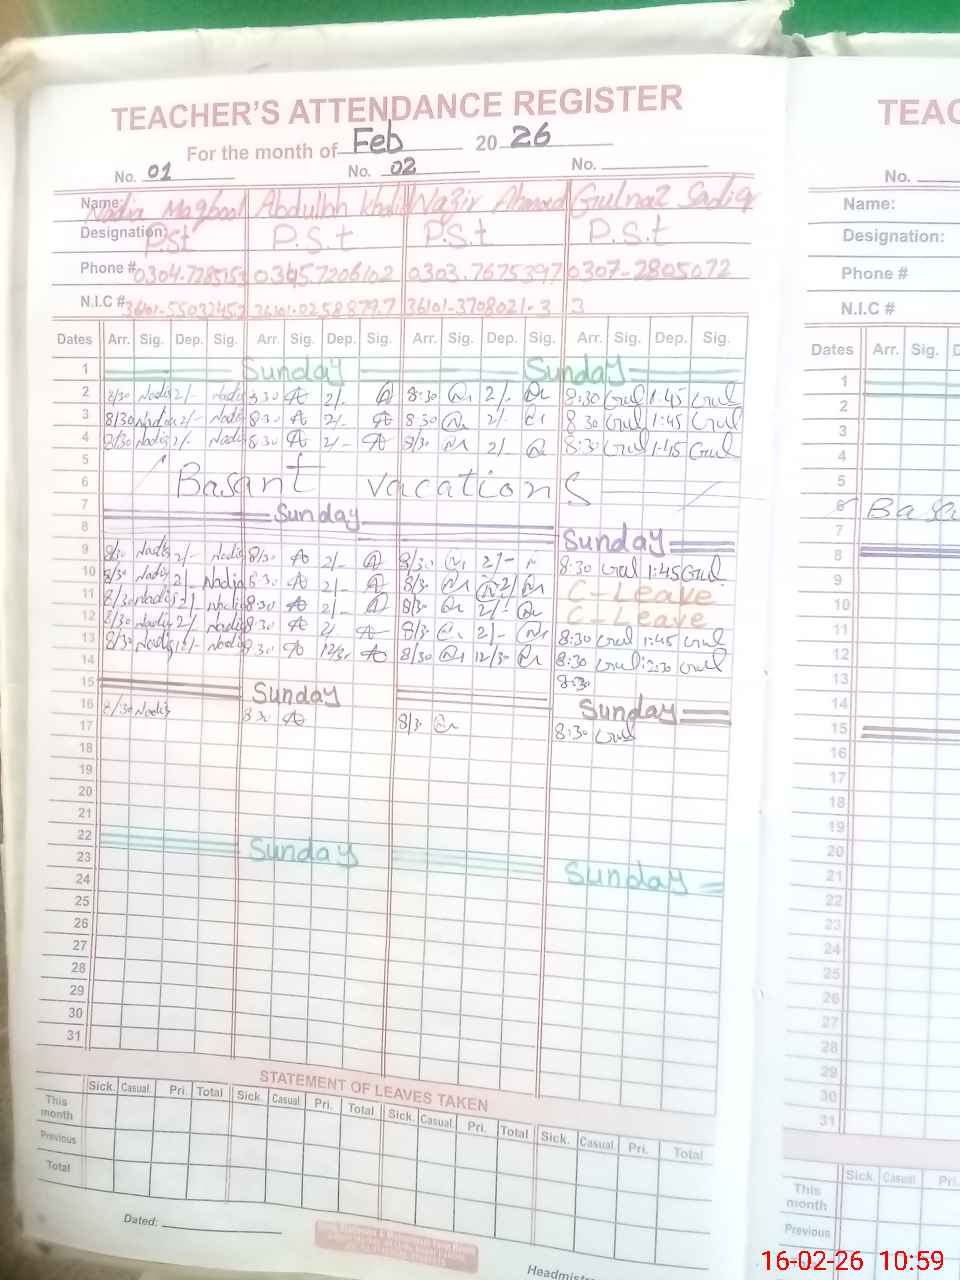 TEACHER'S ATTENDANCE REGISTER
For the month of Feb 2026
No. 01 No. 02 No.
Name: Nadia Maqbool Abdullah Khalid Nazir Ahmed Gulnaz Sadiq
Designation: P.St P.S.t P.S.t P.S.t
Phone # 0304-7785153 0345.7206102 0303.7675397 0307-2805072
N.I.C # 36101-5503245.2 36101.0258879.7 36101-3708021-3 3
Dates Arr. Sig. Dep. Sig. Arr. Sig. Dep. Sig. Arr. Sig. Dep. Sig. Arr. Sig. Dep. Sig.
1 Sunday Sunday
2 8/30 Nadia 2/- Nadia 8.30 2/- 8:30 2/- 8:30 Gul 1:45 Gul
3 8/30 Nadia 2/- Nadia 8.30 2/- 8.30 2/- 8 30 Gul 1:45 Gul
4 8/30 Nadia 2/- Nadia 8.30 2/- 8/30 2/- 8:30 Gul 1:45 Gul
5
6 Basant vacations
7 Sunday
8 Sunday
9 8/30 Nadia 2/- Nadia 8/30 2/- 8/30 2/- 8:30 Gul 1:45 Gul
10 8/30 Nadia 2/- Nadia 8.30 2/- 8/30 2/- C-Leave
11 8/30 Nadia 2/- Nadia 8.30 2/- 8/30 2/- C-Leave
12 8/30 Nadia 2/- Nadia 8.30 2/- 8/30 2/- 8:30 Gul 1:45 Gul
13 8/30 Nadia Nadia 8.30 12/30 8/30 12/30 8:30 Gul Gul
14 8:30
15 Sunday Sunday
16 8/30 Nadia 8 30 8/30 8:30 Gul
17
18
19
20
21
22 Sunday
23 Sunday
24
25
26
27
28
29
30
31
STATEMENT OF LEAVES TAKEN
Sick. Casual Pri. Total Sick. Casual Pri. Total Sick. Casual Pri. Total Sick. Casual Pri. Total
This month
Previous
Total
Dated:
Headmistr
TEAC
No.
Name:
Designation:
Phone #
N.I.C #
Dates Arr. Sig. D
1
2
3
4
5
6 Basa
7
8
9
10
11
12
13
14
15
16
17
18
19
20
21
22
23
24
25
26
27
28
29
30
31
Sick. Casual Pri.
This month
Previous
16-02-26 10:59